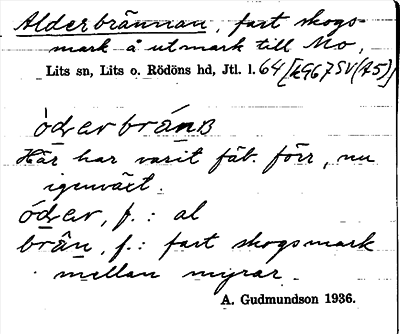 Alderbrännan, fast skogs-
mark å utmark till Mo,
Lits sn, Lits o. Rödöns hd, Jtl. l. 64 [k967SV(A5)]
òderbránB
Här har varit fäb. förr, nu
igenväxt.
óder, f.: al
brân, f.: fast skogsmark
mellan myrar.
A. Gudmundson 1936.